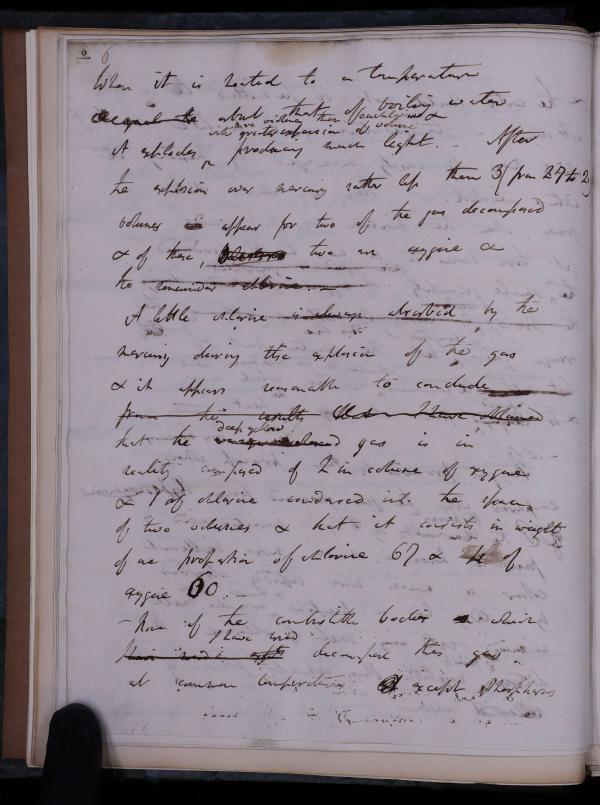 6
When it is heated to a temperature
about that of boiling water
with great expansion of volume &
it explodes producing much light. After
the explosion over mercury rather less than 3 (from 27 to 2
volumes appear for two of the gas decomposed
& of these, two are oxygene &
the remainder chlorine. —
A little chlorine is always absorbed by the
mercury during the explosion of the gas
& it appears reasonable to conclude
from the results that I have obtained
deep yellow
that the gas is in
reality composed of 2 in volume of oxygene
& 1 of chlorine condensed into the space
of two volumes & that it consists in weight
of one proportion of chlorine 67 & 4 of
oxygene 60. —
- None of the combustible bodies which
I have tried
decompose this gas
at common temperatures except Phosphorus